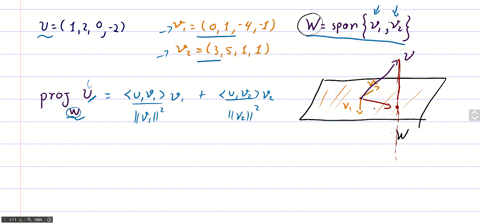 u = (1, 2, 0, -2)
→ v₁ = (0, 1, -4, -1)
→ v₂ = (3, 5, 1, 1)
W = span {v₁, v₂}
proj_W u = <u, v₁>/||v₁||² v₁ + <u, v₂>/||v₂||² v₂
u
v₂
v₁
W